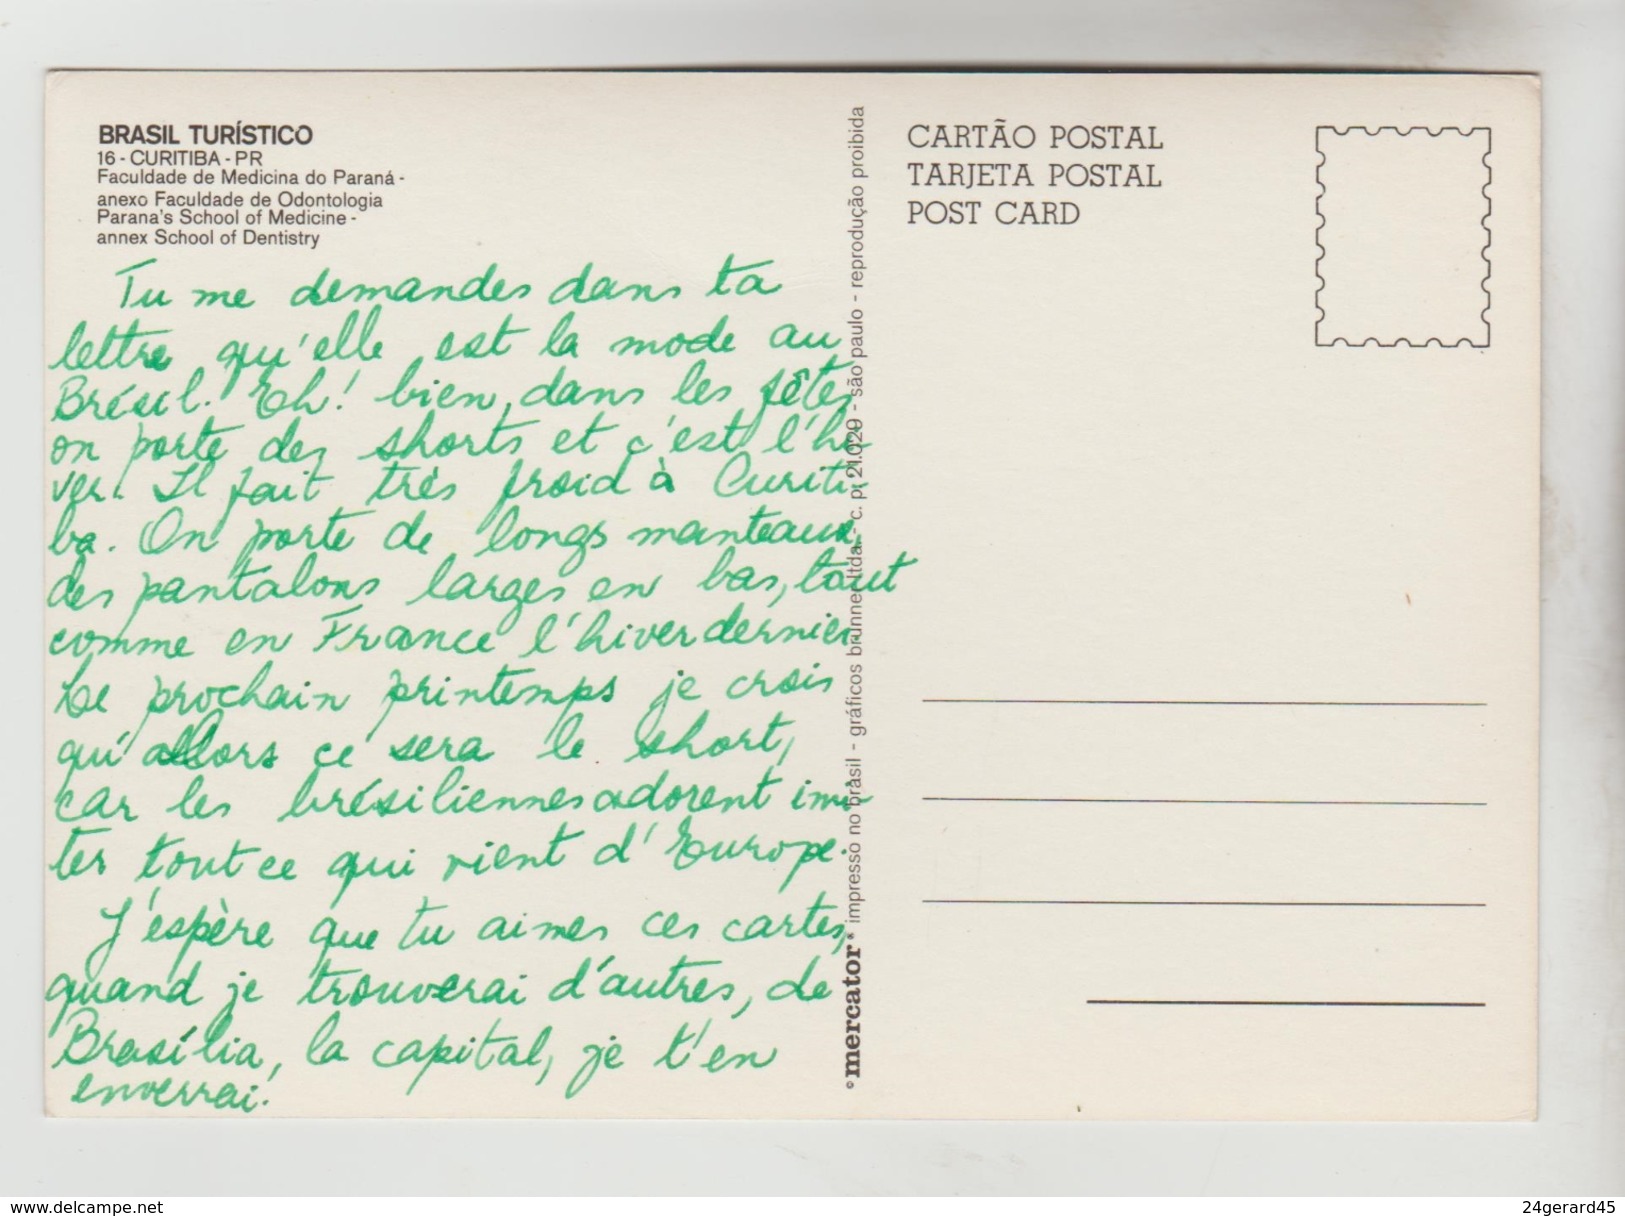 BRASIL TURÍSTICO
16 - CURITIBA - PR
Faculdade de Medicina do Paraná -
anexo Faculdade de Odontologia
Parana's School of Medicine -
annex School of Dentistry
Tu me demandes dans ta
lettre qu'elle est la mode au
Brésil. Eh! bien, dans les fêtes
on porte des shorts et c'est l'hi
ver. Il fait très froid à Curiti-
ba. On porte de longs manteaux,
des pantalons larges en bas, tout
comme en France l'hiver dernier.
Le prochain printemps je crois
qu'allors ce sera le short,
car les brésiliennes adorent imi-
ter tout ce qui vient d'Europe.
J'espère que tu aimes ces cartes,
quand je trouverai d'autres, de
Brasília, la capital, je t'en
enverrai.
mercator impresso no brasil - gráficos brunner ltda. - c. p. 21.029 - são paulo - reprodução proibida
CARTÃO POSTAL
TARJETA POSTAL
POST CARD
www.delcampe.net
24gerard45